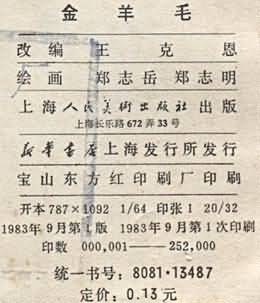 金羊毛
改编 王克恩
绘画 郑志岳 郑志明
上海人民美術出版社出版
上海长乐路672弄33号
新华書店上海发行所发行
宝山东方红印刷厂印刷
开本787×1092 1/64 印张1 20/32
1983年9月第1版 1983年9月第1次印刷
印数 000,001——252,000
统一书号：8081·13487
定价：0.13元